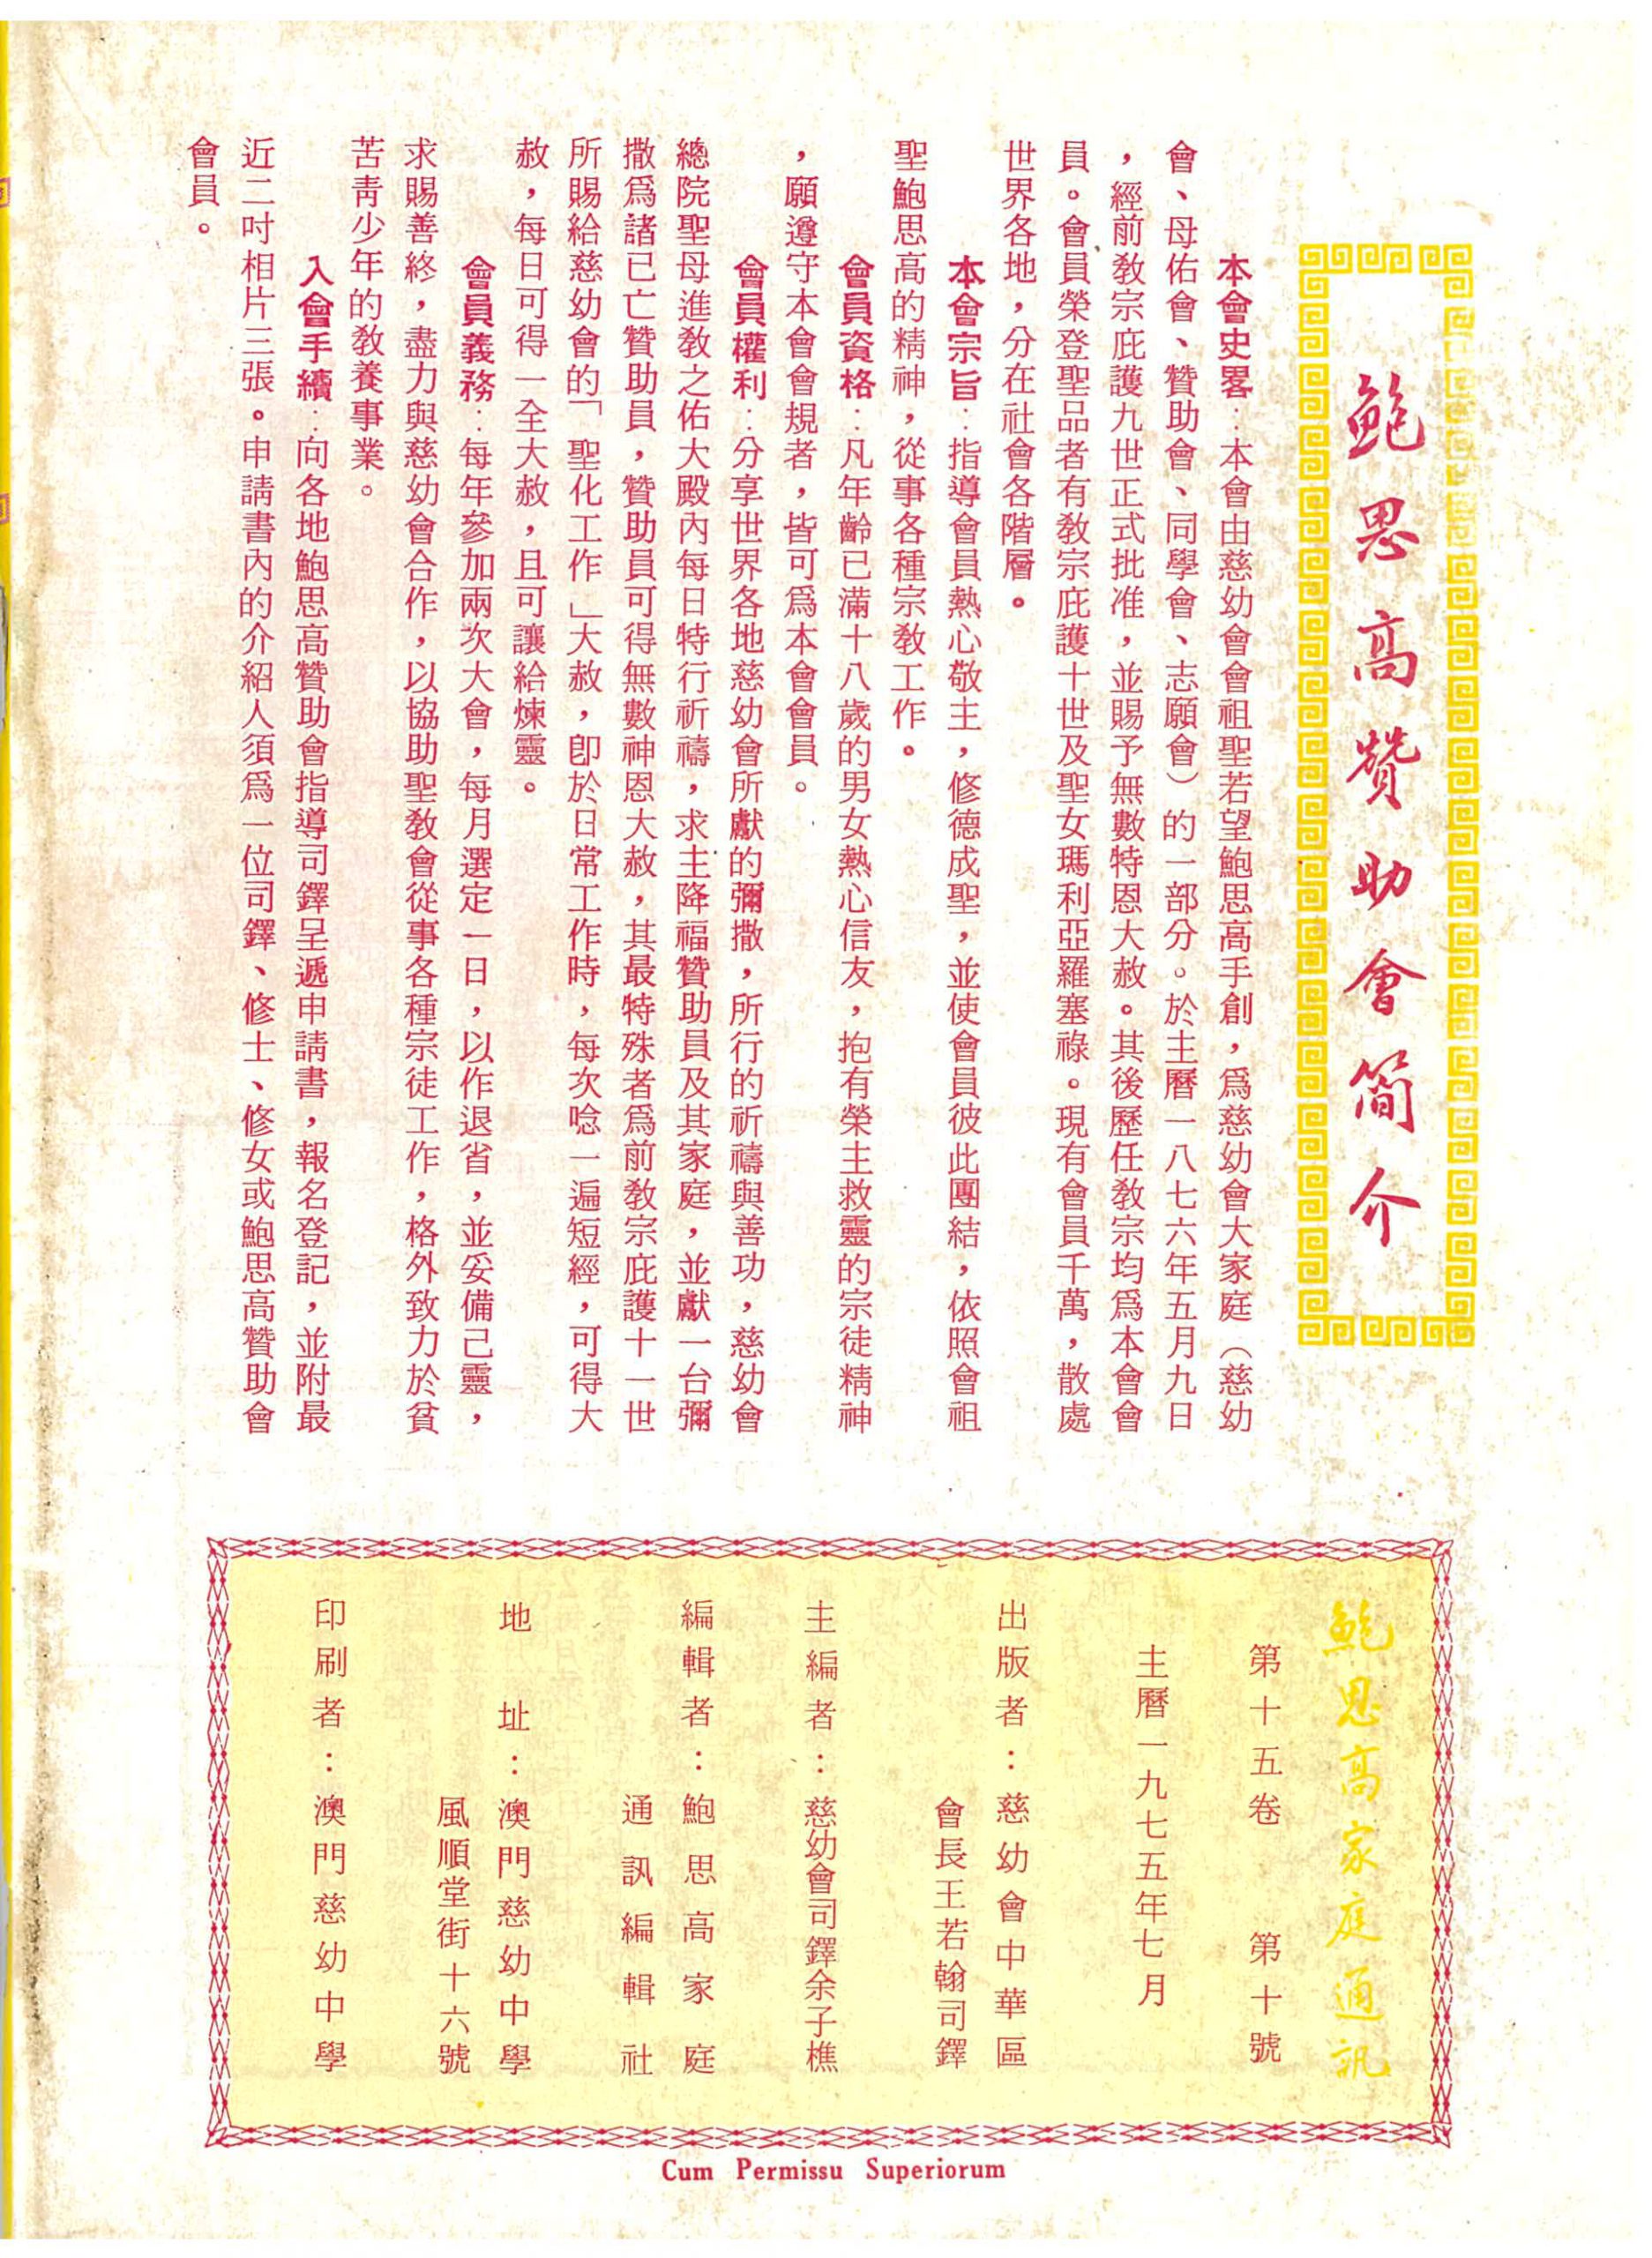 鮑思高贊助會簡介
本會史畧：本會由慈幼會會祖聖若望鮑思高手創，爲慈幼會大家庭（慈幼
會、母佑會、贊助會、同學會、志願會）的一部分。於主曆一八七六年五月九日
，經前敎宗庇護九世正式批准，並賜予無數特恩大赦。其後歷任敎宗均爲本會會
員。會員榮登聖品者有敎宗庇護十世及聖女瑪利亞羅塞祿。現有會員千萬，散處
世界各地，分在社會各階層。
本會宗旨：指導會員熱心敬主，修德成聖，並使會員彼此團結，依照會祖
聖鮑思高的精神，從事各種宗敎工作。
會員資格：凡年齡已滿十八歲的男女熱心信友，抱有榮主救靈的宗徒精神
，願遵守本會會規者，皆可爲本會會員。
會員權利：分享世界各地慈幼會所獻的彌撒，所行的祈禱與善功，慈幼會
總院聖母進敎之佑大殿內每日特行祈禱，求主降福贊助員及其家庭，並獻一台彌
撒爲諸已亡贊助員，贊助員可得無數神恩大赦，其最特殊者爲前敎宗庇護十一世
所賜給慈幼會的「聖化工作」大赦，卽於日常工作時，每次唸一遍短經，可得大
赦，每日可得一全大赦，且可讓給煉靈。
會員義務：每年參加兩次大會，每月選定一日，以作退省，並妥備己靈，
求賜善終，盡力與慈幼會合作，以協助聖敎會從事各種宗徒工作，格外致力於貧
苦靑少年的敎養事業。
入會手續：向各地鮑思高贊助會指導司鐸呈遞申請書，報名登記，並附最
近二吋相片三張。申請書內的介紹人須爲一位司鐸、修士、修女或鮑思高贊助會
會員。
鮑思高家庭通訊
第十五卷 第十號
主曆一九七五年七月
出版者：慈幼會中華區
會長王若翰司鐸
主編者：慈幼會司鐸余子樵
編輯者：鮑思高家庭
通訊編輯社
地址：澳門慈幼中學
風順堂街十六號
印刷者：澳門慈幼中學
Cum Permissu Superiorum